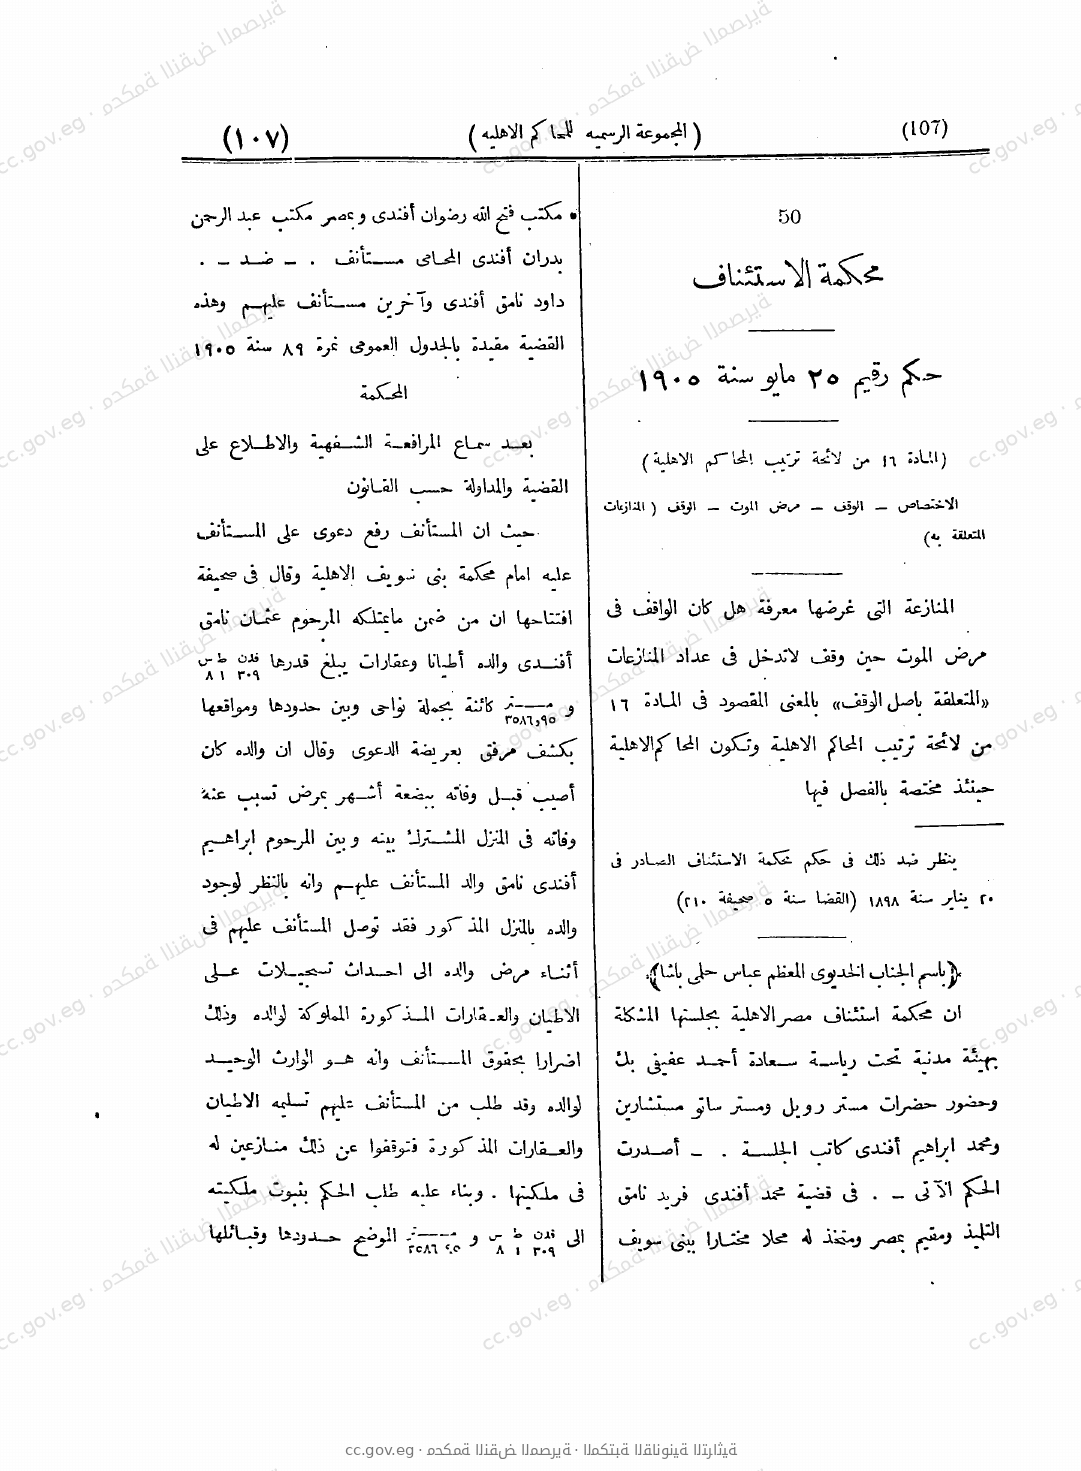 (107)
(المجموعة الرسميه للمحاكم الاهليه)
(١٠٧)
50
محكمة الاستئناف
حكم رقيم ٢٥ مايو سنة ١٩٠٥
(المادة ١٦ من لائحة ترتيب المحاكم الاهلية)
الاختصاص – الوقف – مرض الموت – الوقف (المنازعات
المتعلقة به)
المنازعة التى غرضها معرفة هل كان الواقف فى
مرض الموت حين وقف لاتدخل فى عداد المنازعات
«المتعلقة باصل الوقف» بالمعنى المقصود فى المادة ١٦
من لائحة ترتيب المحاكم الاهلية وتكون المحاكم الاهلية
حينئذ مختصة بالفصل فيها
ينظر ضد ذلك فى حكم محكمة الاستئناف الصادر فى
٢٠ يناير سنة ١٨٩٨ (القضا سنة ٥ صحيفة ٢١٠)
(باسم الجناب الخديوى المعظم عباس حلمى باشا)
ان محكمة استئناف مصر الاهلية بجلستها المشكلة
بهيئة مدنية تحت رياسة سعادة أحمد عفيفى بك
وحضور حضرات مستر رويل ومستر ساتو مستشارين
ومحمد ابراهيم أفندى كاتب الجلسة . – أصدرت
الحكم الآتى – . فى قضية محمد أفندى فريد نامق
التلميذ ومقيم بمصر ومتخذ له محلا مختارا ببنى سويف
مكتب فتح الله رضوان أفندى وبمصر مكتب عبد الرحمن
بدران أفندى المحامى مستأنف . – ضد – .
داود نامق أفندى وآخرين مستأنف عليهم وهذه
القضية مقيدة بالجدول العمومى نمرة ٨٩ سنة ١٩٠٥
المحكمة
بعد سماع المرافعة الشفهية والاطلاع على
القضية والمداولة حسب القانون
حيث ان المستأنف رفع دعوى على المستأنف
عليه امام محكمة بنى سويف الاهلية وقال فى صحيفة
افتتاحها ان من ضمن مايمتلكه المرحوم عثمان نامق
أفندى والده أطيانا وعقارات يبلغ قدرها فدن ط س
٣٠٩ ١ ٨
و متر كائنة بجملة نواحى وبين حدودها ومواقعها
٣٥٨٦,٩٥
بكشف مرفق بعريضة الدعوى وقال ان والده كان
أصيب قبل وفاته ببضعة أشهر بمرض تسبب عنه
وفاته فى المنزل المشترك بينه وبين المرحوم ابراهيم
أفندى نامق والد المستأنف عليهم وانه بالنظر لوجود
والده بالمنزل المذكور فقد توصل المستأنف عليهم فى
أثناء مرض والده الى احداث تسجيلات على
الاطيان والعقارات المذكورة المملوكة لوالده وذلك
اضرارا بحقوق المستأنف وانه هو الوارث الوحيد
لوالده وقد طلب من المستأنف عليهم تسليمه الاطيان
والعقارات المذكورة فتوقفوا عن ذلك منازعين له
فى ملكيتها . وبناء عليه طلب الحكم بثبوت ملكيته
الى فدن ط س و متر الموضح حدودها وقبائلها
٣٠٩ ١ ٨
cc.gov.eg · محكمة النقض المصرية · المكتبة القانونية التراثية